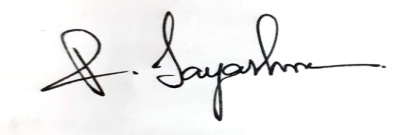 P. Jayashree